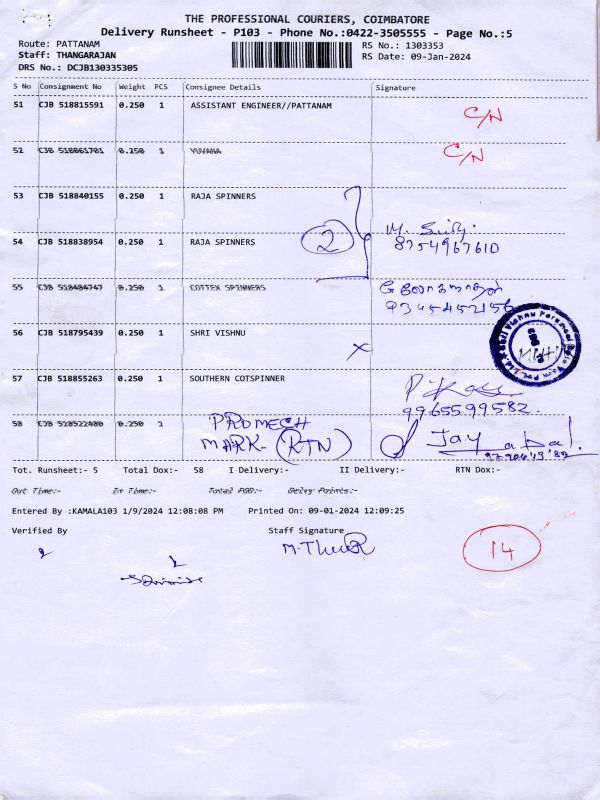 THE PROFESSIONAL COURIERS, COIMBATORE
Delivery Runsheet - P103 - Phone No.:0422-3505555 - Page No.:5
Route: PATTANAM
RS No.: 1303353
Staff: THANGARAJAN
RS Date: 09-Jan-2024
DRS No.: DCJB130335305
S No Consignment No Weight PCS Consignee Details Signature
51 CJB 518815591 0.250 1 ASSISTANT ENGINEER//PATTANAM C/N
52 CJB 0.250 1 C/N
53 CJB 518840155 0.250 1 RAJA SPINNERS
54 CJB 518838954 0.250 1 RAJA SPINNERS 2 M. 8754967610
55 CJB 518484747 0.250 1 COTTEX SPINNERS
56 CJB 518795439 0.250 1 SHRI VISHNU X
57 CJB 518855263 0.250 1 SOUTHERN COTSPINNER P
9965599582
58 CJB 0.250 1 PROMECH
MARK- (RTN)
Tot. Runsheet:- 5 Total Dox:- 58 I Delivery:- II Delivery:- RTN Dox:-
Out Time:- In Time:- Total POD:- Delay Points:-
Entered By :KAMALA103 1/9/2024 12:08:08 PM Printed On: 09-01-2024 12:09:25
Verified By Staff Signature
14